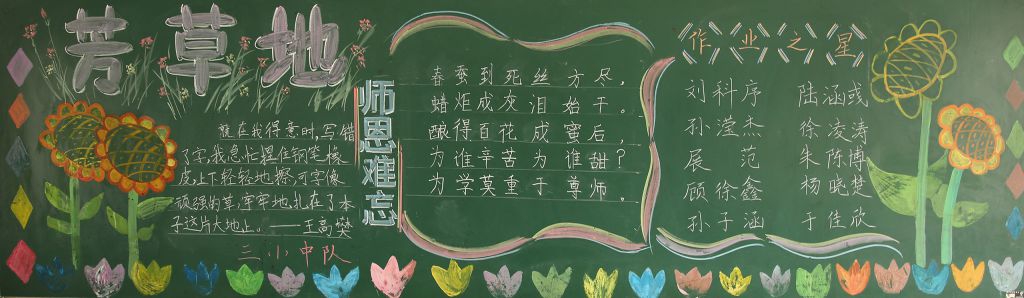 芳草地
就在我得意时,写错
了字,我急忙握住钢笔橡
皮上下轻轻地擦,可字像
顽强的草,牢牢地,扎在了本
子这片大地上。——王高樊
三(小)中队
师恩难忘
春蚕到死丝方尽,
蜡炬成灰泪始干。
酿得百花成蜜后,
为谁辛苦为谁甜?
为学莫重于尊师。
作业之星
刘科序 陆涵彧
孙滢杰 徐凌涛
展范 朱陈博
顾徐鑫 杨晓楚
孙子涵 于佳欣